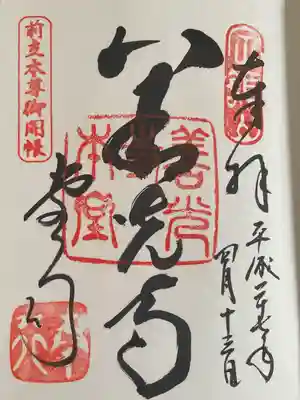 奉拝
平成二十七年
四月十三日
善光寺
善光寺本堂
堂司
前立本尊御開帳